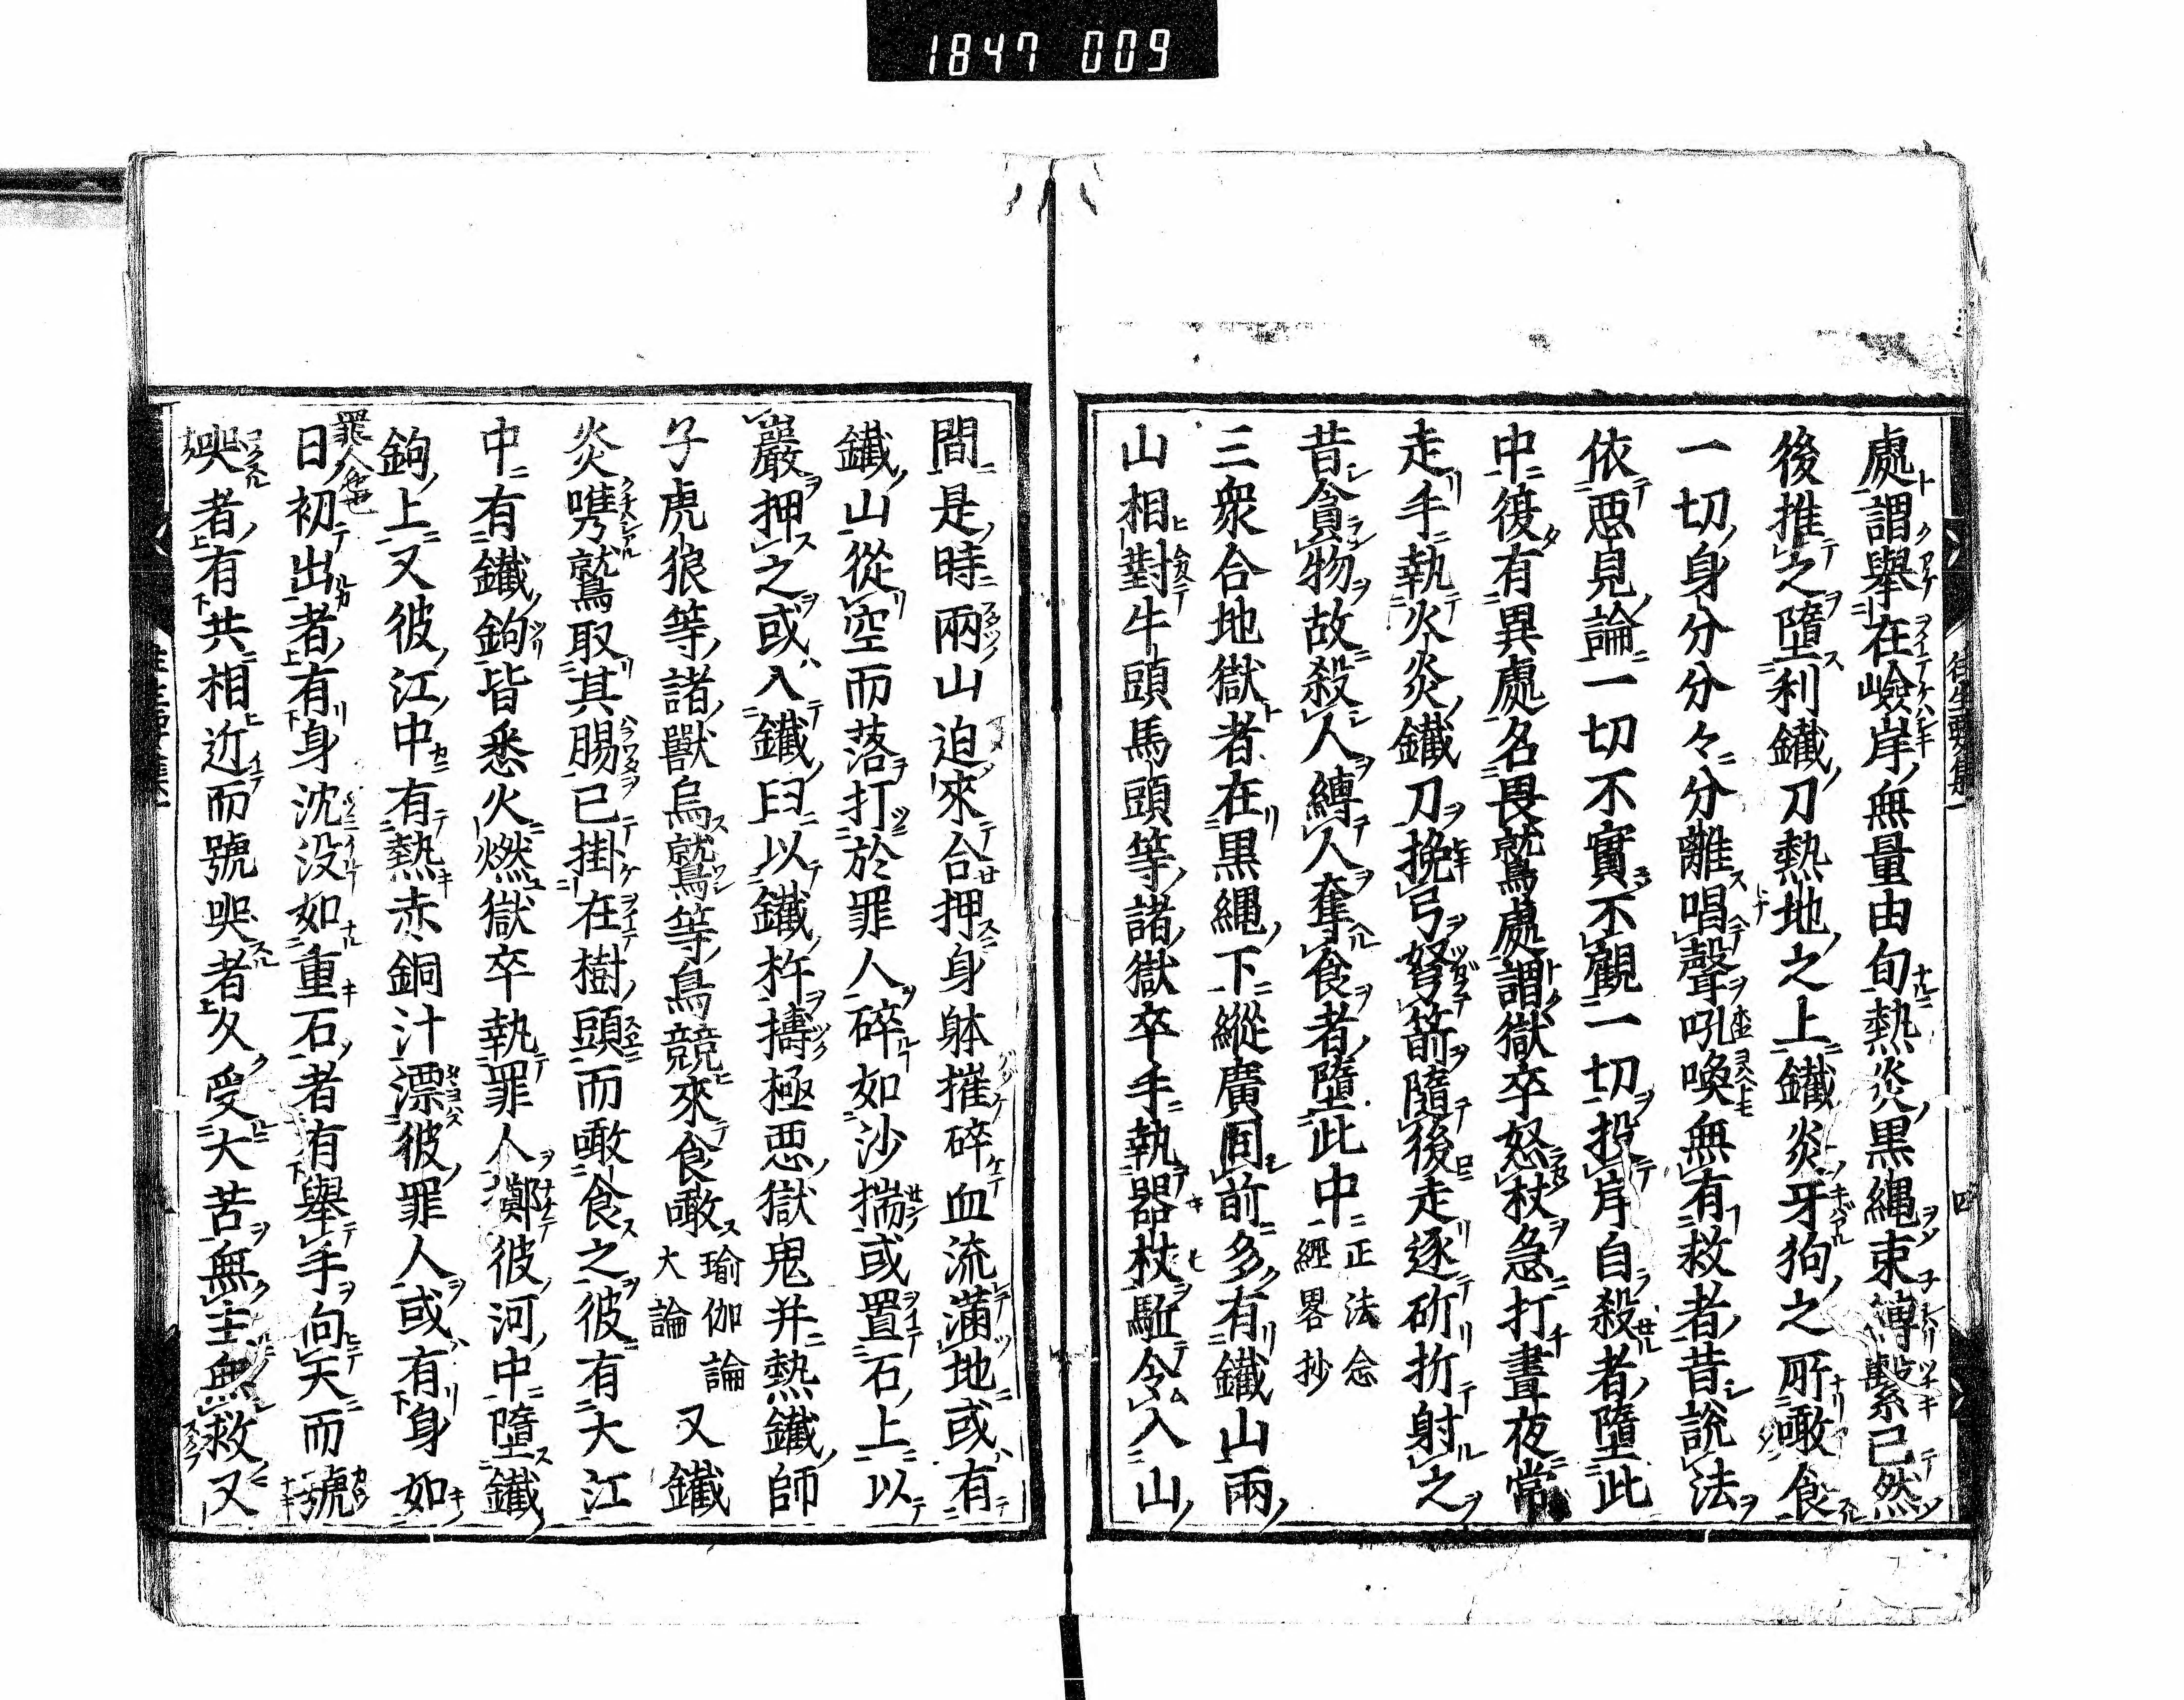 1847 009
往生要集一
四
處謂擧在嶮岸無量由旬熱炎黒縄束縛繋已然
後推之墮利鐵刀熱地之上鐵炎牙狗之所噉食
一切身分分々分離唱聲吼喚無有救者昔説法
依惡見論一切不實不觀一切投岸自殺者墮此
中復有異處名畏鷲處謂獄卒怒杖急打晝夜常
走手執火炎鐵刀挽弓弩箭隨後走逐斫打射之
昔貪物故殺人縛人奪食者墮此中正法念
經畧抄
三衆合地獄者在黒縄下縱廣同前多有鐵山兩
山相對牛頭馬頭等諸獄卒手執器杖駈令入山
間是時兩山迫來合押身躰摧碎血流滿地或有
鐵山從空而落打於罪人碎如沙揣或置石上以
巖押之或入鐵臼以鐵杵擣極惡獄鬼并熱鐵師
子虎狼等諸獸烏鷲等鳥競來食噉瑜伽論
大論又鐵
炎嘴鷲取其腸已掛在樹頭而噉食之彼有大江
中有鐵鉤皆悉火燃獄卒執罪人擲彼河中墮鐵
鉤上又彼江中有熱赤銅汁漂彼罪人或有身如
日初出者有身沈没如重石者有擧手向天而號
哭者有共相近而號哭者久受大苦無主無救又